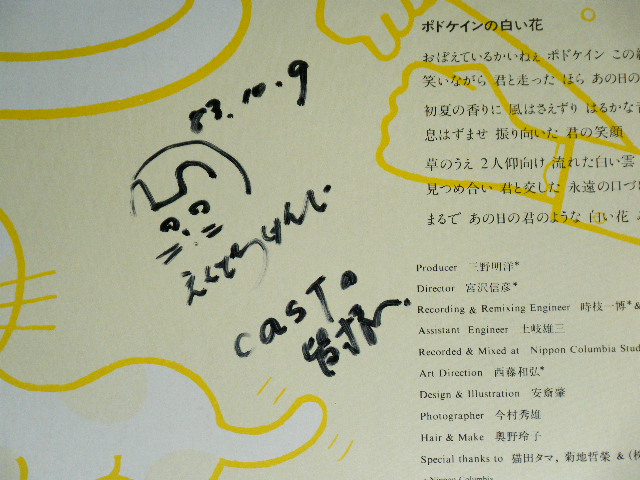 ポドケインの白い花
おぼえているかいねぇ ポドケイン この
笑いながら 君と走った ほら あの日の
初夏の香りに 風はさえずり はるかな
息はずませ 振り向いた 君の笑顔
草のうえ 2人仰向け 流れた白い雲
見つめ合い 君と交した 永遠の口づ
まるで あの日の君のような 白い花
83.10.9
えくぼうけんじ
casT。
皆様へ.
Producer 三野明洋*
Director 宮沢信彦*
Recording & Remixing Engineer 時枝一博*&
Assistant Engineer 土岐雄三
Recorded & Mixed at Nippon Columbia Stud
Art Direction 西藤和弘*
Design & Illustration 安斎肇
Photographer 今村秀雄
Hair & Make 奥野玲子
Special thanks to 猫田タマ, 菊地哲榮 & (株
Nippon Columbia